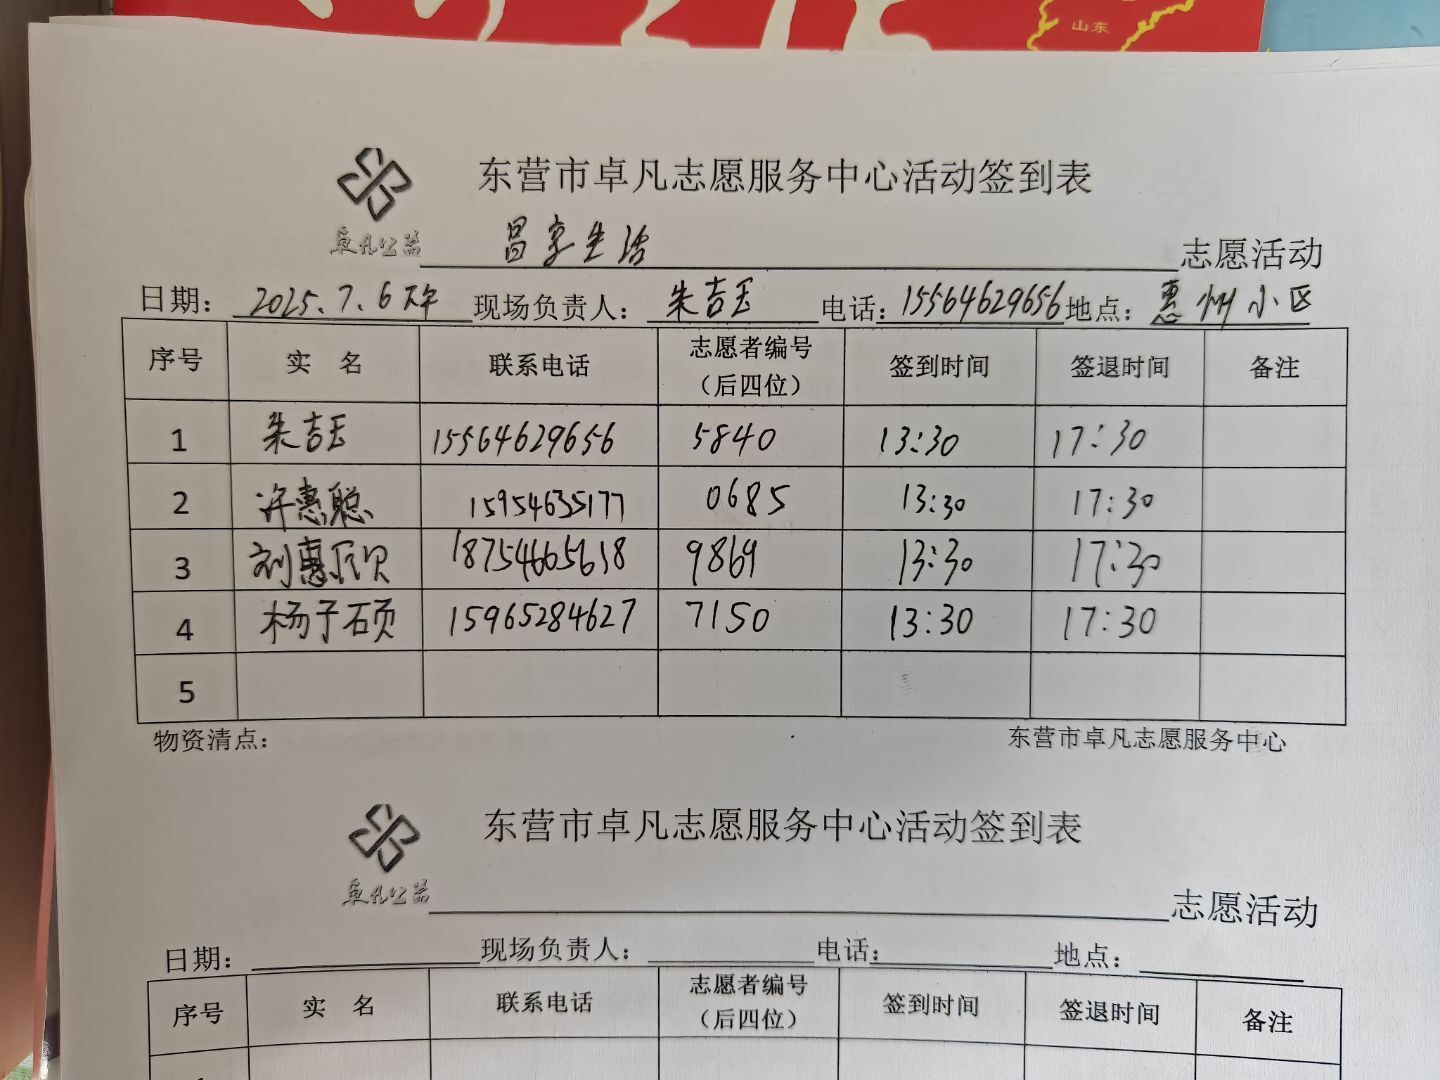 山东
东营市卓凡志愿服务中心活动签到表
卓凡公益 昌享生活 志愿活动
日期：2025.7.6下午 现场负责人：朱吉玉 电话：15564629656 地点：惠州小区
序号 实 名 联系电话 志愿者编号（后四位） 签到时间 签退时间 备注
1 朱吉玉 15564629656 5840 13:30 17:30
2 许惠聪 15954635177 0685 13:30 17:30
3 刘惠欣 18754665618 9869 13:30 17:30
4 杨子硕 15965284627 7150 13:30 17:30
5
物资清点： 东营市卓凡志愿服务中心
东营市卓凡志愿服务中心活动签到表
卓凡公益 志愿活动
日期： 现场负责人： 电话： 地点：
序号 实 名 联系电话 志愿者编号（后四位） 签到时间 签退时间 备注